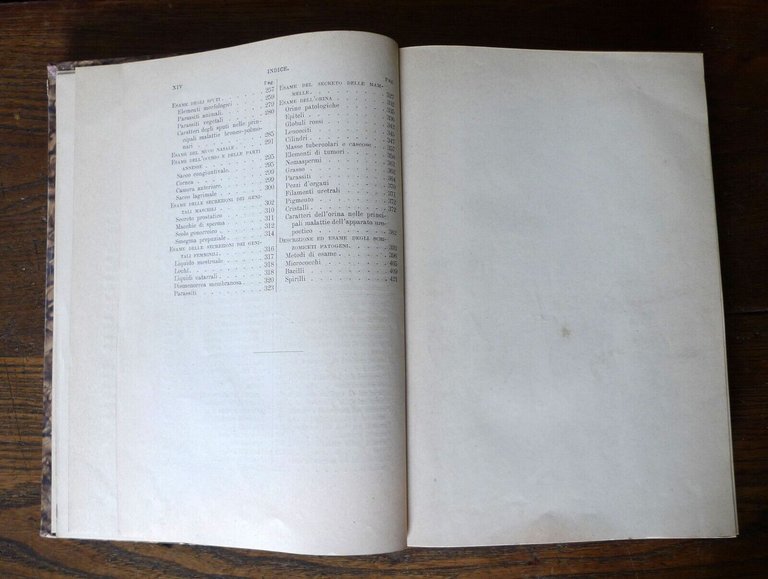 XIV
INDICE.
Pag.
ESAME DEGLI SPUTI . . . . . 257
Elementi morfologici . . . . 259
Parassiti animali . . . . . 279
Parassiti vegetali . . . . . 280
Caratteri degli sputi nelle prin-
cipali malattie bronco-polmo-
nari . . . . . 285
ESAME DEL MUCO NASALE . . . . 291
ESAME DELL'OCCHIO E DELLE PARTI
ANNESSE . . . . . 295
Sacco congiuntivale . . . . . 295
Cornea . . . . . 299
Camera anteriore . . . . . 299
Sacco lagrimale . . . . . 300
ESAME DELLE SECREZIONI DEI GENI-
TALI MASCHILI . . . . . 302
Secreto prostatico . . . . . 310
Macchie di sperma . . . . . 311
Scolo gonorroico . . . . . 312
Smegma prepuziale . . . . . 314
ESAME DELLE SECREZIONI DEI GENI-
TALI FEMMINILI . . . . . 316
Liquido mestruale . . . . . 317
Lochi . . . . . 318
Liquidi catarrali . . . . . 318
Dismenorrea membranosa . . . 320
Parassiti . . . . . 323
Pag.
ESAME DEL SECRETO DELLE MAM-
MELLE . . . . . 325
ESAME DELL'ORINA . . . . . 332
Orine patologiche
Epiteli
Globuli rossi . . . . . 345
Leucociti . . . . . 345
Cilindri . . . . . 347
Masse tubercolari e caseose
Elementi di tumori
Nemaspermi
Grasso
Parassiti . . . . . 364
Pezzi d'organi . . . . . 370
Filamenti uretrali
Pigmento . . . . . 372
Cristalli . . . . . 372
Caratteri dell'orina nelle princi-
pali malattie dell'apparato uro-
poetico . . . . . 382
DESCRIZIONE ED ESAME DEGLI SCHI-
ZOMICETI PATOGENI . . . . . 393
Metodi di esame . . . . . 396
Micrococchi . . . . . 405
Bacilli . . . . . 409
Spirilli . . . . . 421